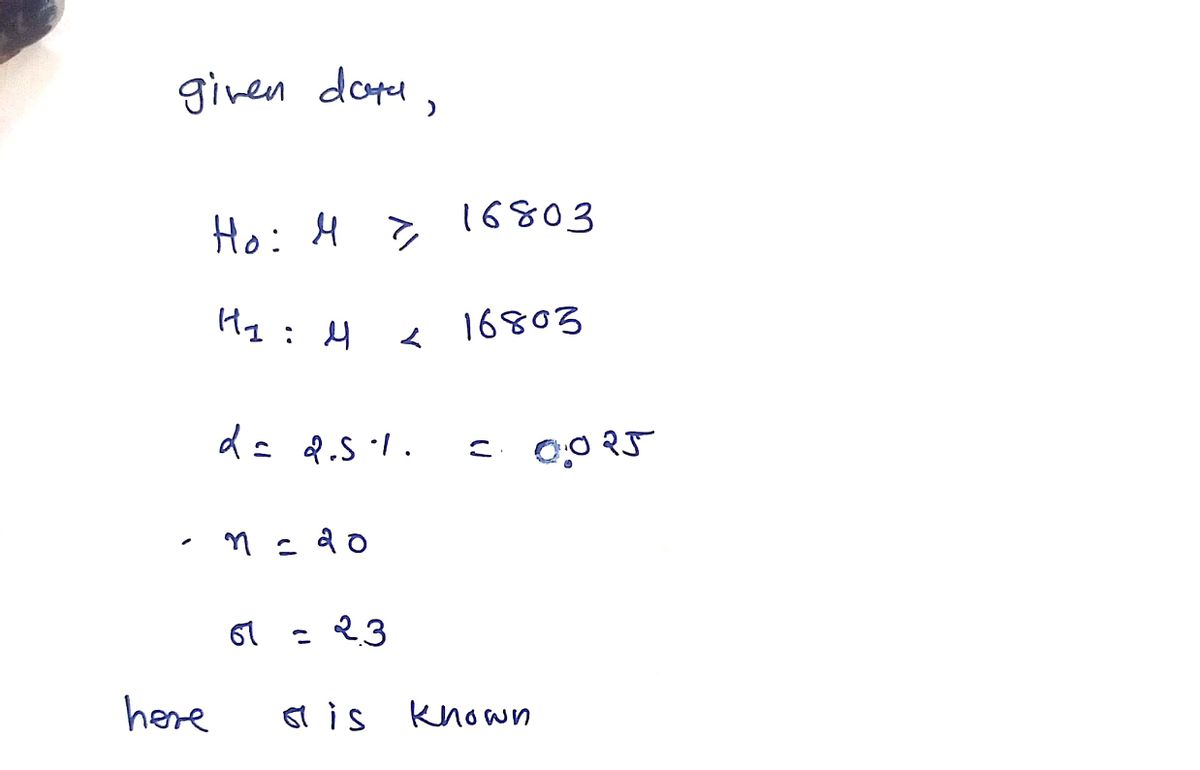 given data,
H₀: μ ≥ 16803
H₁: μ < 16803
α = 2.5 % = 0.025
n = 20
σ = 2.3
here σ is known